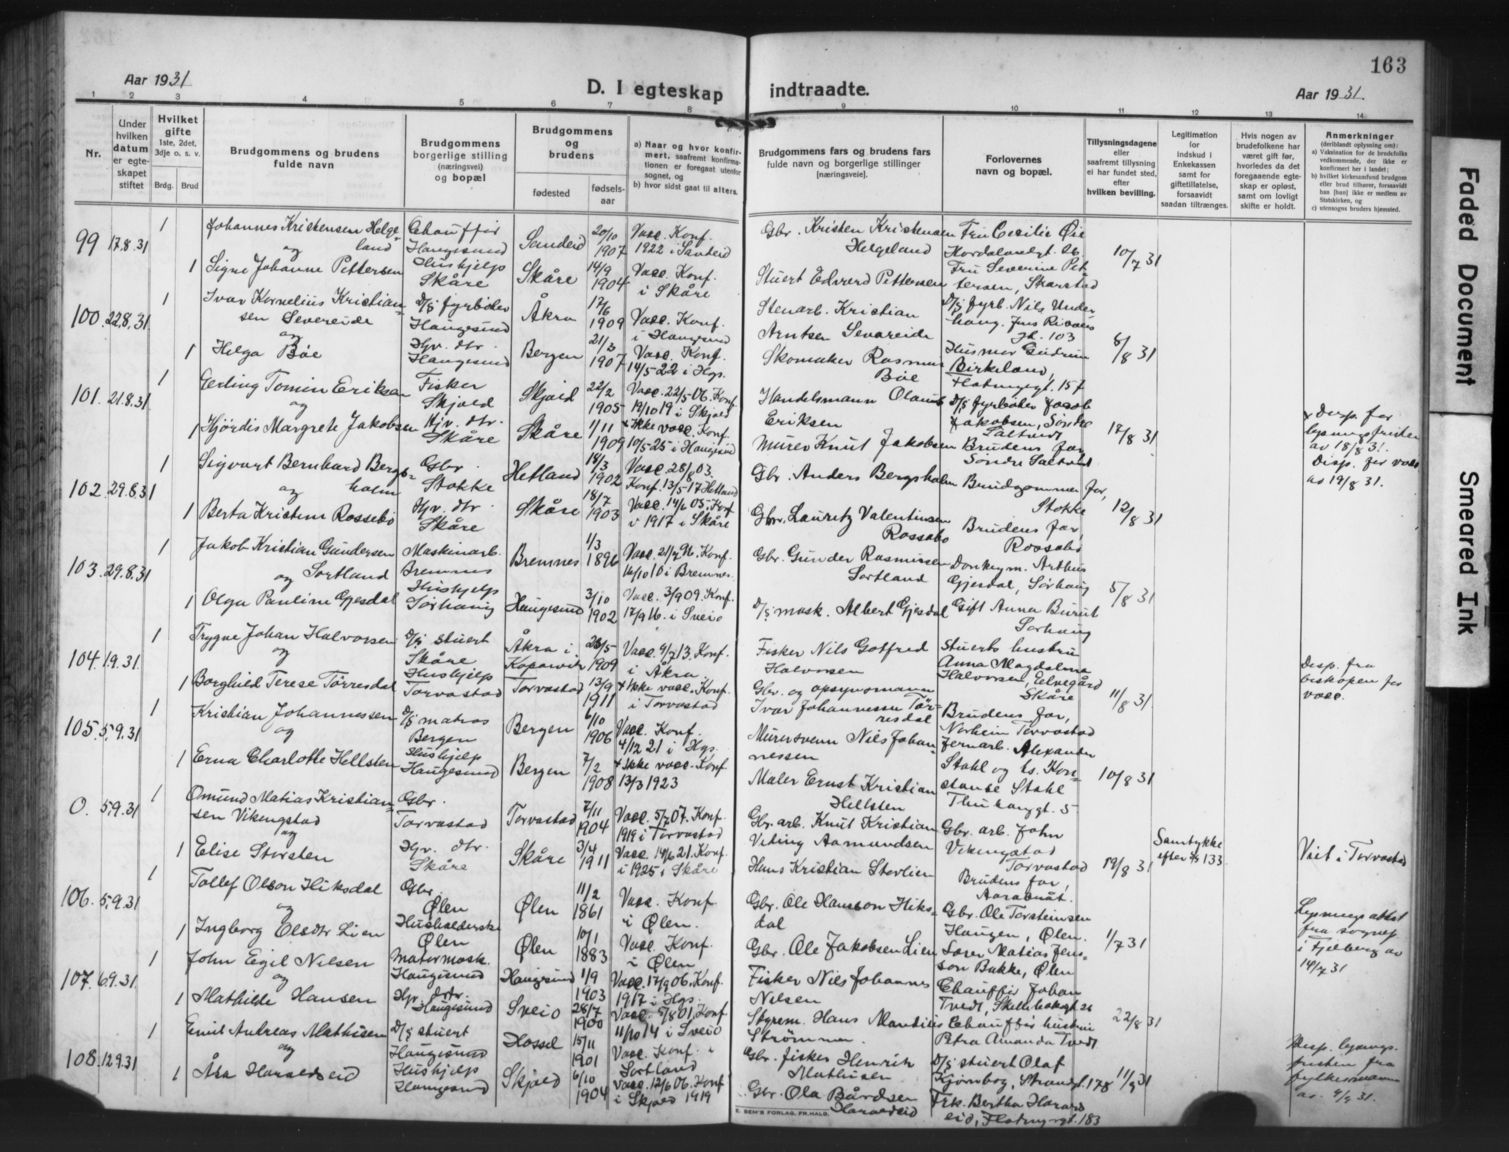 163
Aar 1931
D. Iegteskap indtraadte.
Aar 1931.
1 2 3 4 5 6 7 8 9 10 11 12 13 14
Nr.
Under hvilken datum er egteskapet stiftet
Hvilket gifte
1ste, 2det, 3dje o. s. v.
Brdg. Brud
Brudgommens og brudens fulde navn
Brudgommens borgerlige stilling (næringsvei) og bopæl
Brudgommens og brudens
fødested
fødselsaar
a) Naar og hvor konfirmert, saafremt konfirmationen er foregaat utenfor sognet, og
b) hvor sidst gaat til alters.
Brudgommens fars og brudens fars fulde navn og borgerlige stillinger (næringsveie).
Forlovernes navn og bopæl.
Tillysningsdagene eller saafremt tillysning ei har fundet sted, efter hvilken bevilling.
Legitimation for indskud i Enkekassen samt for giftetillatelse, forsaavidt saadan tiltrænges.
Hvis nogen av brudefolkene har været gift før, hvorledes da det foregaaende egteskap er opløst, samt om lovligt skifte er holdt.
Anmerkninger
(deriblandt oplysning om):
a) Vaksination for de brudefolks vedkommende, der ikke er konfirmert her i landet;
b) hvilket kirkesamfund brudgom eller brud tilhører, forsaavidt han [hun] ikke er medlem av Statskirken, og
c) utensogns bruders hjemsted.
99 17.8.31 1 Johannes Kristensen Helgeland
Chauffør
Haugesund
Sandeid
20/10 1907
Vacc. Konf. 1922 i Sandeid
Gbr. Kristen Kristensen Helgeland
Fru Cecilie Øie
10/7 31
og
1 Signe Johanne Pettersen
Hushjelp
Skåre
Skåre
14/9 1904
Vacc. Konf. i Skåre
Stuert Edvard Pettersen
Fru Severine Pettersen, Skarstad
100 22.8.31 1 Ivar Kornelius Kristiansen Severeide
D/s fyrbøter
Haugesund
Åkra
17/6 1909
Vacc. Konf. i Haugesund
Stenarb. Kristian Arntsen Sevareide
8/8 31
og
1 Helga Bøe
Hjv. dtr.
Haugesund
Bergen
21/3 1907
Vacc. Konf. 14/5-22 i Hgs.
Skomaker Rasmus Bøe
Husmor Gudrun Birkeland,
Flotmyrgt. 157
101. 21.8.31 1 Gerling Tomin Eriksen
Fisker
Skjold
Skjold
22/2 1905
Vacc. 22/5-06. Konf. 19/10 19 i Skjold
Handelsmann Olaus Eriksen
D/s fyrbøter Jacob Jakobsen, Søndre Saltveit
18/8 31
Disp. for lysningsfristen av 18/8 31.
og
1 Hjørdis Margrete Jakobsen
Hjv. dtr.
Skåre
Skåre
1/11 1909
Ikke vacc. Konf. 10/5-25 i Haugesund
Murer Knut Jakobsen
Brudens far, Søndre Saltveit
Disp. for vacc. av 19/8 31.
102. 29.8.31 1 Sigvart Bernhard Bergsholm
Gbr.
Stokke
Hetland
18/3 1902
Vacc. 28/8 03. Konf. 13/5-17 Hetland
Gbr. Anders Bergsholm
Brudgommens far, Stokke
12/8 31
og
1 Berta Kristine Rossebø
Hjv. dtr.
Skåre
Skåre
18/7 1903
Vacc. 14/6 05. Konf. v 1917 i Skåre
Gbr. Lauritz Valentinsen Rossebø
Brudens far, Rossebø
103. 29.8.31 1 Jakob Kristian Gundersen Sortland
Maskinarb.
Bremnes
Bremnes
1/3 1896
Vacc. 21/7 96. Konf. 16/10 10 i Bremnes
Gbr. Gunder Rasmussen Sortland
Donkeym. Arthur Gjesdal, Sørhaug
5/8 31
og
1 Olga Pauline Gjesdal
Hushjelp
Sørhaug
Haugesund
3/10 1902
Vacc. 3/9 09. Konf. 17/9 16. i Sveio
D/s mask. Albert Gjesdal
Gift Anna Sørhaug
104. 1.9.31. 1 Trygve Johan Halvorsen
D/s stuert
Skåre
Åkra i Kopervik
26/5 1909
Vacc. 9/7 13. Konf. i Åkra
Fisker Nils Gotfred Halvorsen
Stuerts hustru Anna Magdalene Halvorsen, Eelvegård Skåre
11/8 31.
Disp. fra biskopen for vacc.
og
1 Borghild Terese Tørresdal
Hushjelp
Torvastad
Torvastad
13/9 1911
Ikke vacc. Konf. i Torvastad
Gbr. og opsynsmann Ivar Johannessen Tørresdal
Brudens far, Torvastad
105. 5.9.31 1 Kristian Johannessen
D/s matros
Bergen
Bergen
6/10 1906
Vacc. Konf. 4/12 21 i Hgs.
Murersvenn Nils Johannessen
Jernarb. Alexander Stahl og hs. Konstanse Stahl
10/8 31
og
1 Erna Charlotte Hellsten
Hushjelp
Haugesund
Bergen
7/2 1908
Ikke vacc. Konf. 13/3 1923
Maler Ernst Kristian Hellsten
0. 5.9.31 1 Omund Matias Kristiansen Vikingstad
Gbr.
Torvastad
Torvastad
7/11 1904
Vacc. 5/7 07. Konf. 1919 i Torvastad
Gbr. arb. Knut Kristian Aamundsen
Gbr. arb. John Vikingstad Torvastad
19/8 31
Samtykke efter § 133
Viet i Torvastad
og
1 Elise Storsten
Hjv. dtr.
Skåre
Skåre
3/4 1911
Vacc. 14/6 21. Konf. i 1925 i Skåre
Hans Kristian
Brudens far,
106. 5.9.31 1 Tollef Olson Hiksdal
Gbr.
Ølen
Ølen
11/2 1861
Vacc. Konf. i Ølen.
Gbr. Ole Hansson Hiksdal
Gbr. Ole Torsteinsen Haugen, Ølen.
1/7 31
Lysningsattest fra sognepr. i Fjelberg av 14/7 31
og
1 Ingborg Elsdtr Lien
Husholderske
Ølen
Ølen
10/1 1883
Vacc. Konf. i Ølen
Gbr. Ole Jakobsen Lien
Lærer Matias Jensson Bakke, Ølen
107. 6.9.31. 1 John Egil Nilsen
Matormask.
Haugesund
Haugesund
11/9 1903
Vacc. 17/9 06. Konf. 1917 i Hgs.
Fisker Nils Johannes Nilsen
Chauffør Johan Tvedt,
22/8 31
og
1 Mathilde Hansen
Hjv. dtr.
Haugesund
Sveio
28/7 1900
Vacc. 5/8 01. Konf. 11/10 14 i Sveio
Styrem. Hans Mandius Strømmen
Chauffør hustru Petra Amanda Tvedt
108. 12.9.31 1 Emil Andreas Mathisen
D/s stuert
Haugesund
15/11 1901
Vacc. Konf. i Sortland
Gbr. fisker Henrik Mathisen
D/s stuert Olaf Strandgt. 178
11/9 31
Disp. lysningsfristen fra fylkesmann av. 9/9 31.
og
1 Åsa Haraldseid
Hushjelp
Haugesund
Skjold
6/10 1904
Vacc. 12/6 06. Konf. i Skjold 1919
Gbr. Ola Bårdsen Haraldseid
Frk. Bertha Haraldseid, Flotmyrgt. 183
E. SEM'S FORLAG, FR.HALD.
Faded Document
Smeared Ink